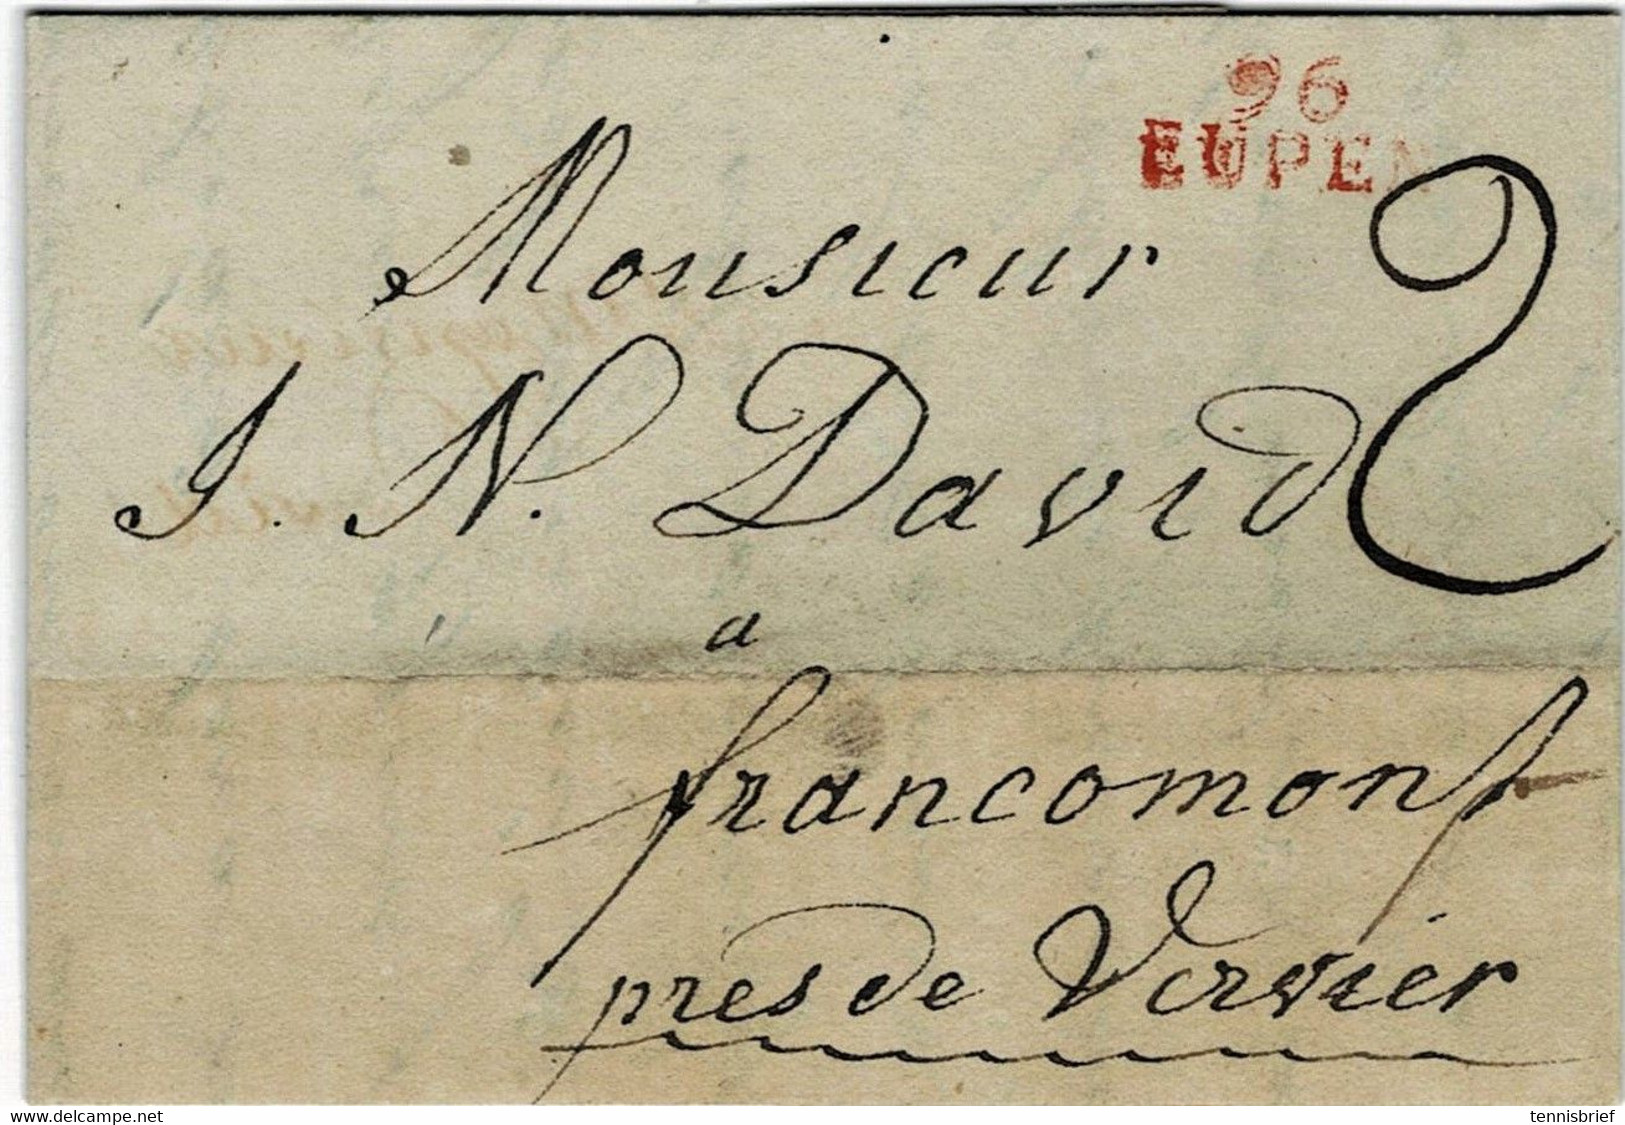 96
EUPEN
Monsieur
J. N. David
2
a
francomont
pres de Vervier
www.delcampe.net
tennisbrief